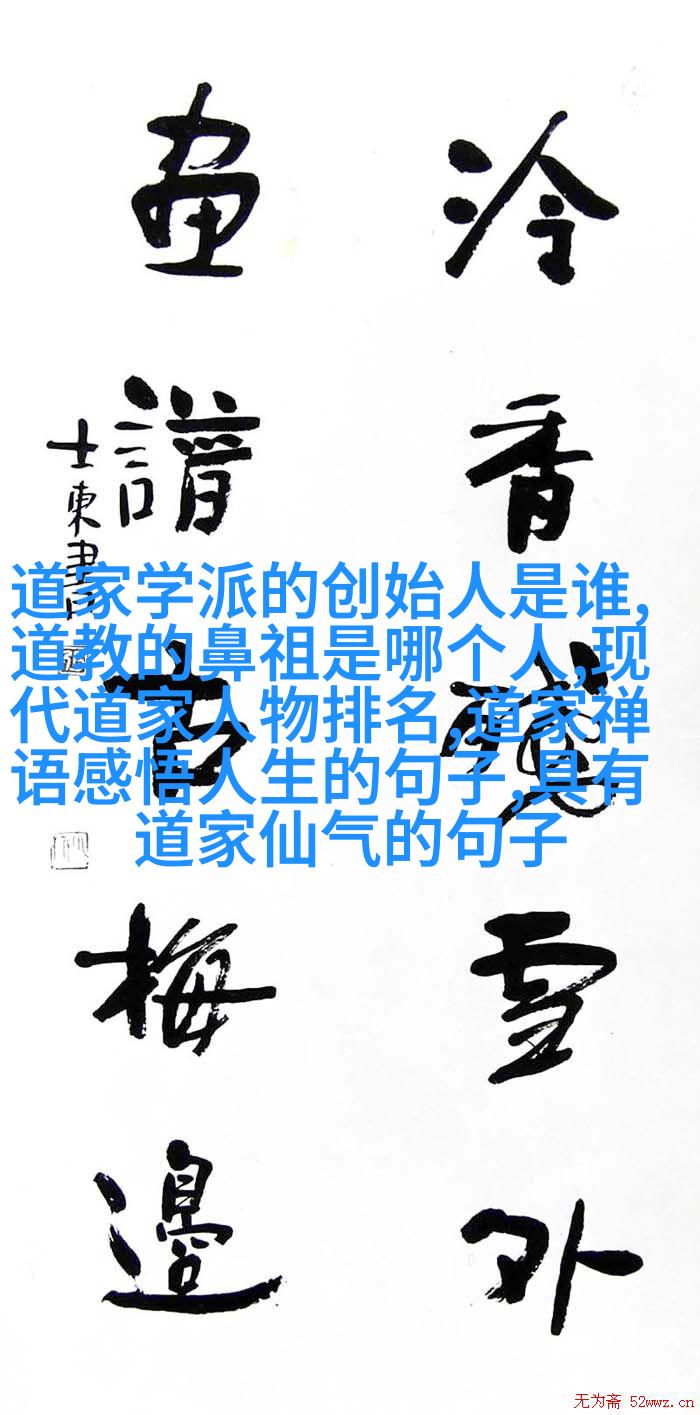 冷香雪外
畫譜古梅邊
士東書
道家学派的创始人是谁,
道教的鼻祖是哪个人,现
代道家人物排名,道家禅
语感悟人生的句子,具有
道家仙气的句子
无为斋 52wwz.cn